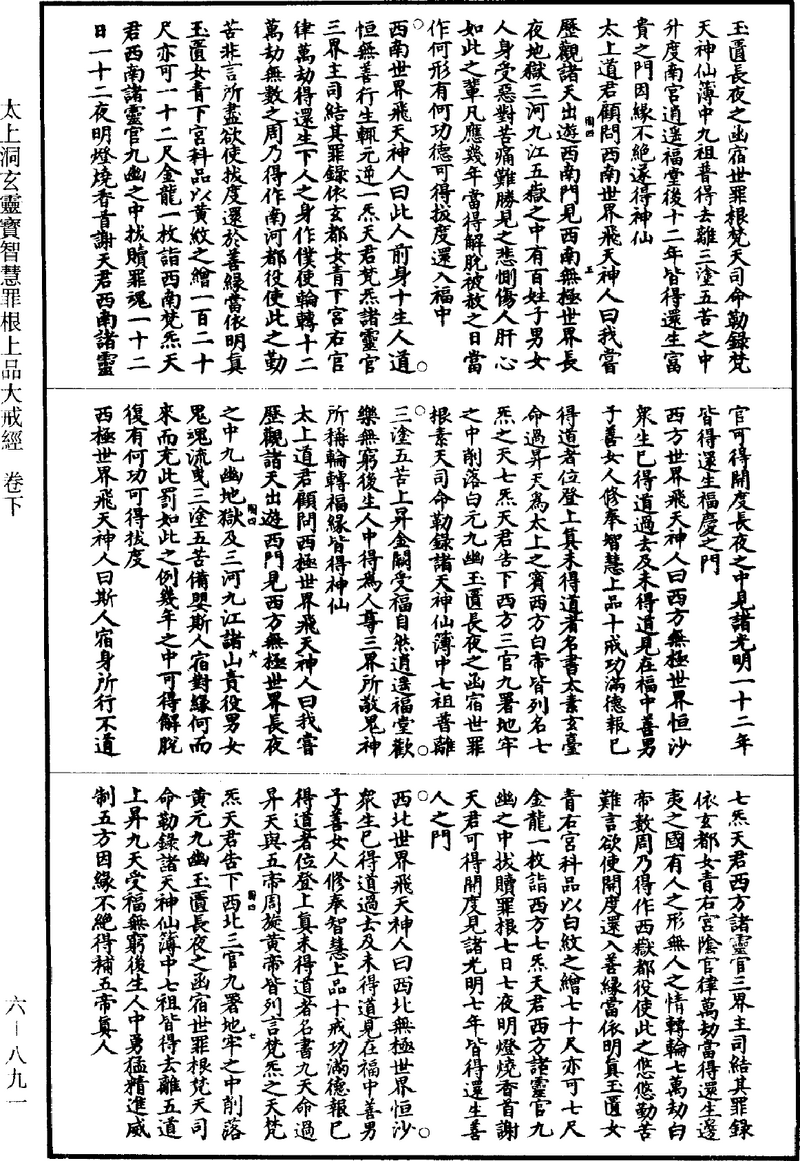 玉匱長夜之凾宿世罪根梵天司命勒錄梵
天神仙薄中九祖普得去離三塗五苦之中
升度南宫逍遥福堂後十二年皆得還生富
貴之門因緣不絕遂得神仙
太上道君顧問西南世界飛天神人曰我嘗
歷觀諸天出遊西南門見西南無極世界長
夜地獄三河九江五嶽之中有百姓子男女
人身受惡對苦痛難勝見之悲惻傷人肝心
如此之輩凡應幾年當得解脫被赦之日當
作何形有何功德可得拔度還入福中
西南世界飛天神人曰此人前身十生人道
恒無善行生輒元逆一炁天君梵炁諸靈官
三界主司結其罪錄依玄都女青下宫右官
律萬劫得還生下人之身作僕使輪轉十二
萬劫無數之周乃得作南河都役使此之勤
苦非言所盡欲使拔度還於善緣當依明真
玉匱女青下宫科品以黄紋之繒一百二十
尺亦可一十二尺金龍一枚詣西南梵炁天
君西南諸靈官九幽之中拔贖罪魂一十二
日一十二夜明燈燒香首謝天君西南諸靈
官可得開度長夜之中見諸光明一十二年
皆得還生福慶之門
西方世界飛天神人曰西方無極世界恒沙
衆生已得道過去及未得道見在福中善男
子善女人修奉智慧上品十戒功滿德報已
得道者位登上真未得道者名書太素玄臺
命過昇天為太上之賓西方白帝皆列名七
炁之天七炁天君告下西方三官九署地牢
之中削落白元九幽玉匱長夜之凾宿世罪
根素天司命勒錄諸天神仙薄中七祖普離
三塗五苦上昇金闕受福自然逍遥福堂歡
樂無窮後生人中得為人尊三界所敬鬼神
所稱輪轉福緣皆得神仙
太上道君顧問西極世界飛天神人曰我嘗
歷觀諸天出遊西門見西方無極世界長夜
之中九幽地獄及三河九江諸山責役男女
鬼魂流曳三塗五苦備嬰斯人宿對緣何而
來而充此罰如此之例幾年之中可得解脫
復有何功可得拔度
西極世界飛天神人曰斯人宿身所行不道
七炁天君西方諸靈官三界主司結其罪錄
依玄都女青右宫陰官律萬劫當得還生邊
夷之國有人之形無人之情轉輪七萬劫白
帝數周乃得作西嶽都役使此之悠悠勤苦
難言欲使開度還入善緣當依明真玉匱女
青右宫科品以白紋之繒七十尺亦可七尺
金龍一枚詣西方七炁天君西方諸靈官九
幽之中拔贖罪根七日七夜明燈燒香首謝
天君可得開度見諸光明七年皆得還生善
人之門
西北世界飛天神人曰西北無極世界恒沙
衆生已得道過去及未得道見在福中善男
子善女人修奉智慧上品十戒功滿德報已
得道者位登上真未得道者名書九天命過
昇天與五帝周旋黄帝皆列言梵炁之天梵
炁天君告下西北三官九署地牢之中削落
黄元九幽玉匱長夜之凾宿世罪根梵天司
命勒錄諸天神仙薄中七祖皆得去離五道
上昇九天受福無窮後生人中勇猛精進威
制五方因緣不絕得補五帝真人
太上洞玄靈寶智慧罪根上品大戒經 卷下
六-八九一